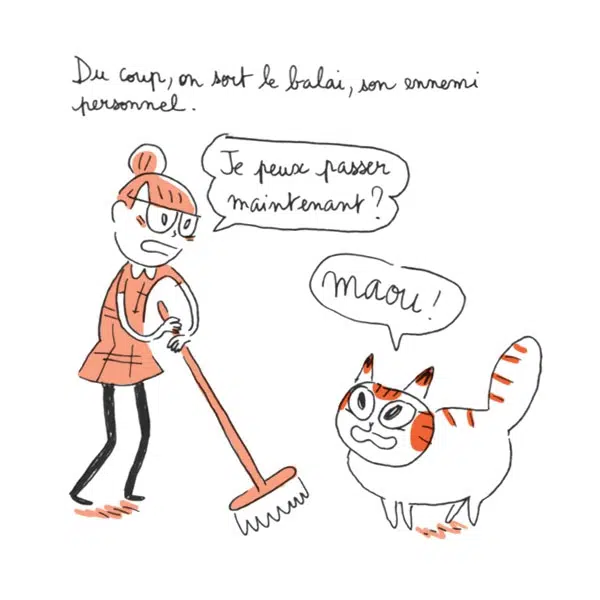 Du coup, on sort le balai, son ennemi
personnel.
Je peux passer
maintenant ?
maou !